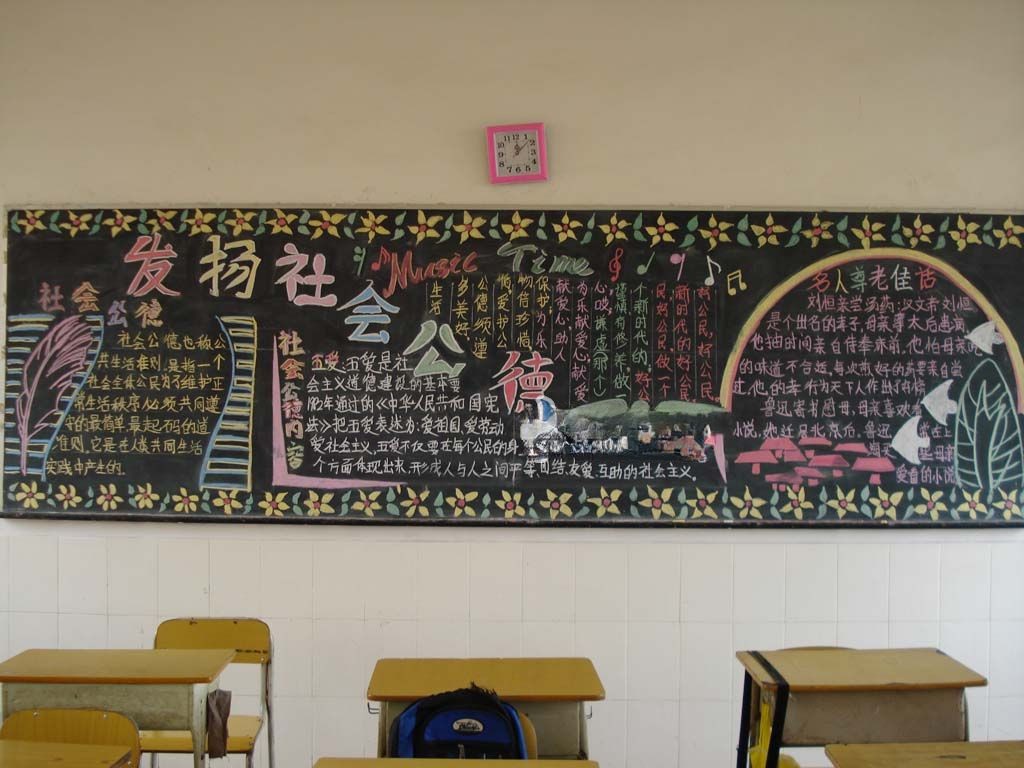 发扬社会公德
Music Time
社会公德
社会公德也称公
共生活准则,是指一个
社会全体公民为了维护正
常生活秩序必须共同遵
守的最简单最起码的道
准则,它是在人类共同生活
实践中产生的。
社会公德内容
五爱:五爱是社
会主义道德建设的基本要
1982年通过的《中华人民共和国宪
法》把五爱表达为:爱祖国,爱劳动
爱社会主义,五爱不仅要在每个公民的身
个方面体现出来,形成人与人之间平等团结友爱互助的社会主义。
好公民,好公民
新时代的好公民
民,好公民做一个
个新时代的好公
谨慎有修养做一
心哎,谦虚那个
为乐献爱心献爱
献爱心,助人
保护,为人乐
物倍珍惜,
惜爱护公
公德须遵
多美好,
生活
名人尊老佳话
刘恒亲尝汤药:汉文帝刘恒
是个出名的孝子,母亲薄太后患病
他抽时间亲自侍奉床前,他怕母亲
的味道不合适,每次煎好的药要亲自尝
过,他的孝行为天下人作出了
鲁迅寄书图母,母亲喜欢看
小说,她迁居北京后,鲁迅
爱看的小说
12
1
2
3
4
5
6
7
8
9
10
11